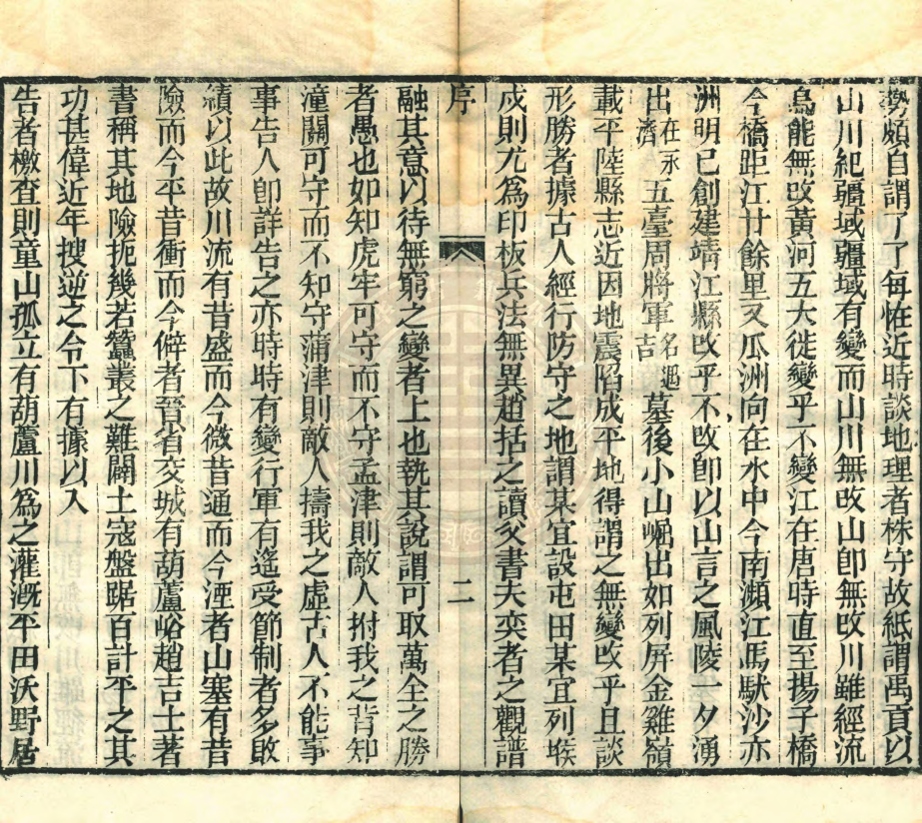 勢頗自謂了了每怪近時談地理者株守故紙謂禹貢以
山川紀疆域疆域有變而山川無改山卽無改川雖經流
烏能無改黃河五大徙變乎不變江在唐時直至揚子橋
今橋距江廿餘里又瓜洲向在水中今南瀕江馬馱沙亦
洲明已創建靖江縣改乎不改卽以山言之風陵一夕湧
出在永濟五臺周將軍名遇吉墓後小山崛出如列屏金雞嶺
載平陸縣志近因地震陷成平地得謂之無變改乎且談
形勝者據古人經行防守之地謂某宜設屯田某宜列堠
成則尤為印板兵法無異趙括之讀父書夫奕者之觀譜
序
二
融其意以待無窮之變者上也執其說謂可取萬全之勝
者愚也如知虎牢可守而不守孟津則敵人拊我之背知
潼關可守而不知守蒲津則敵人擣我之虛古人不能事
事告人卽詳告之亦時時有變行軍有遙受節制者多敗
績以此故川流有昔盛而今微昔通而今湮者山塞有昔
險而今平昔衝而今僻者晉省交城有葫蘆峪趙吉士著
書稱其地險扼幾若蠶叢之難闢土寇盤踞百計平之其
功甚偉近年搜逆之令下有據以入
告者檄查則童山孤立有葫蘆川為之灌溉平田沃野居